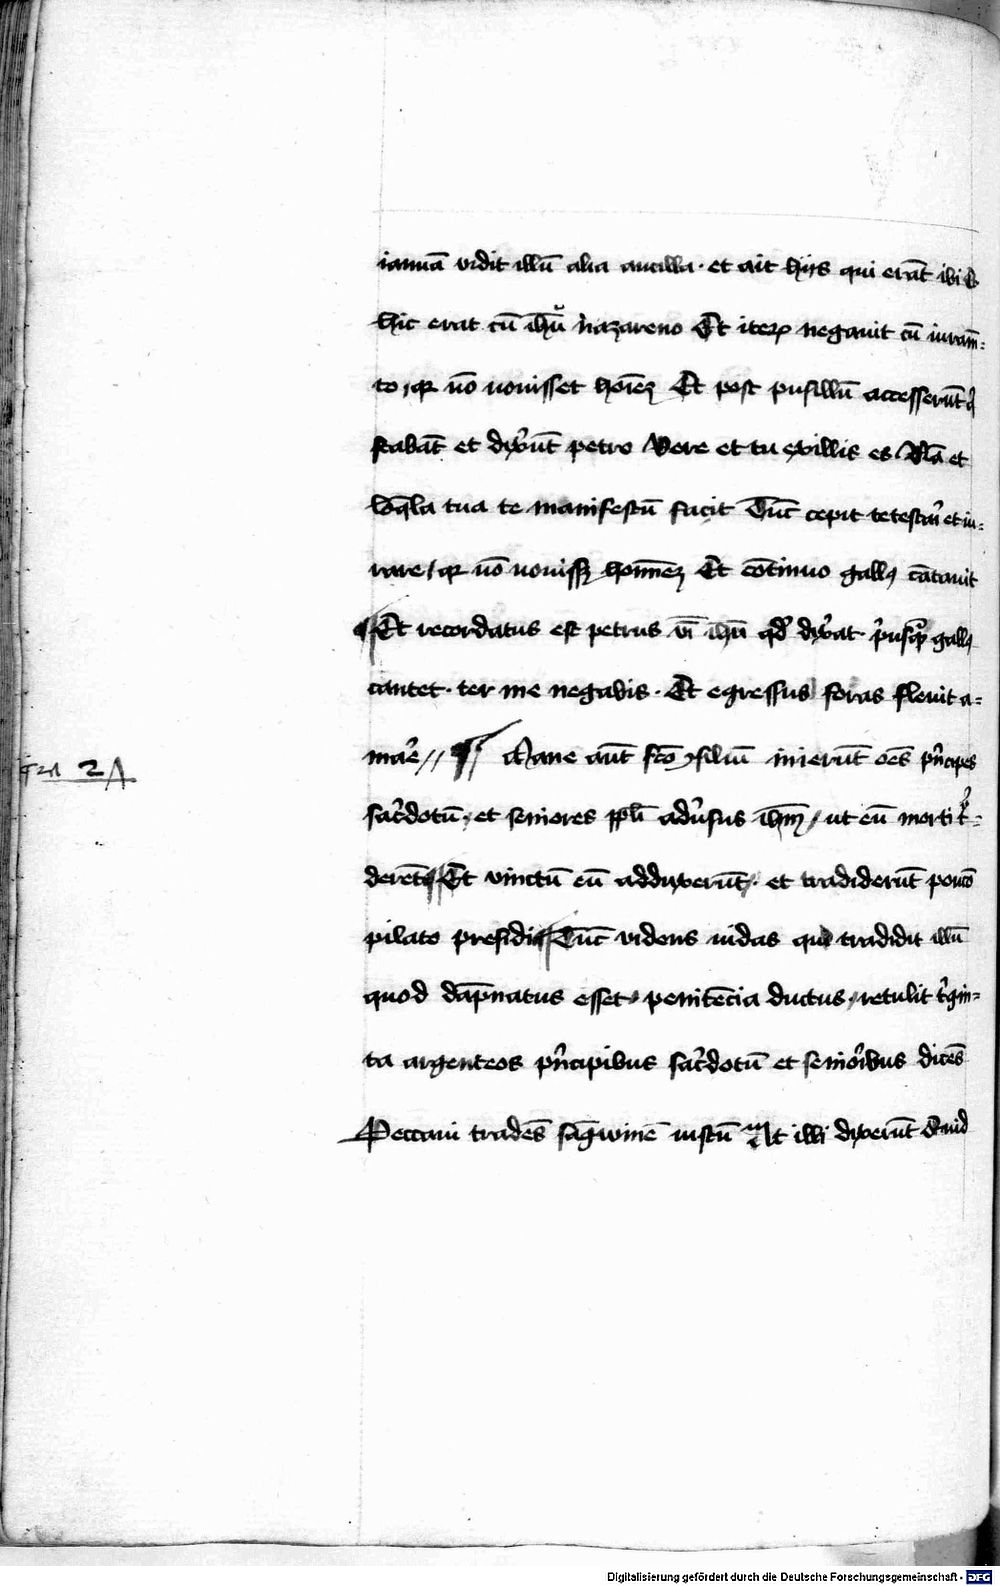 ianuā vidit illū alia ancilla · et ait hijs qui erāt ibi
hic erat cū ihū nazareno Et iterꝝ negauit cū iuram̄-
to / qꝛ nō nouisset hoīeꝫ Et post pusillū accesserūt q̇
stabāt et dix͛ūt petro Vere et tu exillis es Nā et
loq̄la tua te manifestū facit Tūc cepit tetestar͛ et iu-
rare / qꝛ nō nouissꝫ homīneꝫ Et cōtinuo gallꝯ cātauit
Et recordatus est petrus v̄i ihū qd̛ dix͛at p͛usqꝫ gallꝯ
cantet · ter me negabis · Et egressus foras fleuit a-
mar͛e // Mane aūt fc̄o ꝯsiliū inierūt oēs p͛ncipes
sac͛dotū · et seniores ppl̄i adu͛sus ihm̄ / ut eū morti t͛-
derēt Et vinctū eū adduxerūt · et tradiderūt poncō
pilato presidi Tūc videns iudas qui tradidit illū
quod dāpnatus esset · penitēcia ductus · retulit t͛gin-
ta argenteos p͛ncipibus sac͛dotū et senior͛ibus dicēs
Peccaui tradēs sāgwinē iustū At illi dixerūt Quid
2A
Digitalisierung gefördert durch die Deutsche Forschungsgemeinschaft - DFG